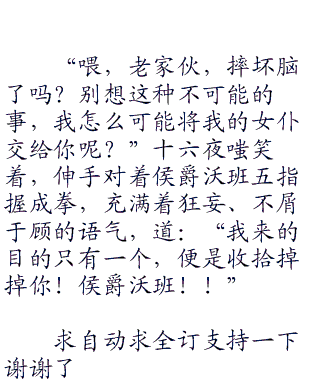 “喂，老家伙，摔坏脑
了吗？别想这种不可能的
事，我怎么可能将我的女仆
交给你呢？”十六夜嗤笑
着，伸手对着侯爵沃班五指
握成拳，充满着狂妄、不屑
于顾的语气，道：“我来的
目的只有一个，便是收拾掉
掉你！侯爵沃班！！”
求自动求全订支持一下
谢谢了